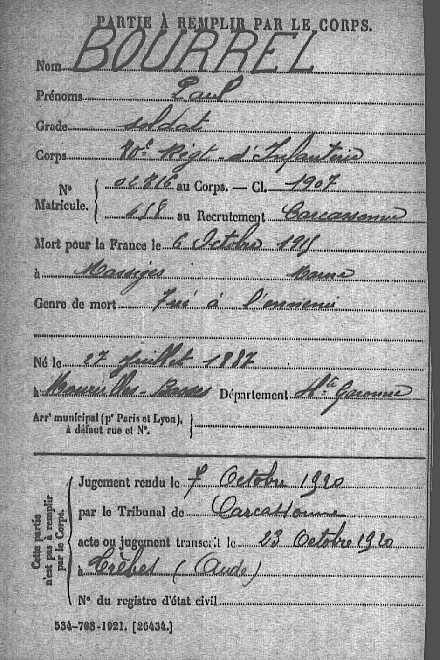 PARTIE À REMPLIR PAR LE CORPS.
Nom BOURREL
Prénoms Paul
Grade soldat
Corps 80e Rigt d'Infanterie
No 02816 au Corps. — Cl. 1907
Matricule. 658 au Recrutement Carcassonne
Mort pour la France le 6 Octobre 1915
à Massiges Marne
Genre de mort Tué à l'ennemi
Né le 27 juillet 1887
à Département Hte Garonne
Arrt municipal (pr Paris et Lyon),
à défaut rue et N°.
Cette partie
n'est pas à remplir
par le Corps.
Jugement rendu le 7 Octobre 1920
par le Tribunal de Carcassonne
acte ou jugement transcrit le 23 Octobre 1920
à Trèbes (Aude)
N° du registre d'état civil
534-708-1921. [26434.]